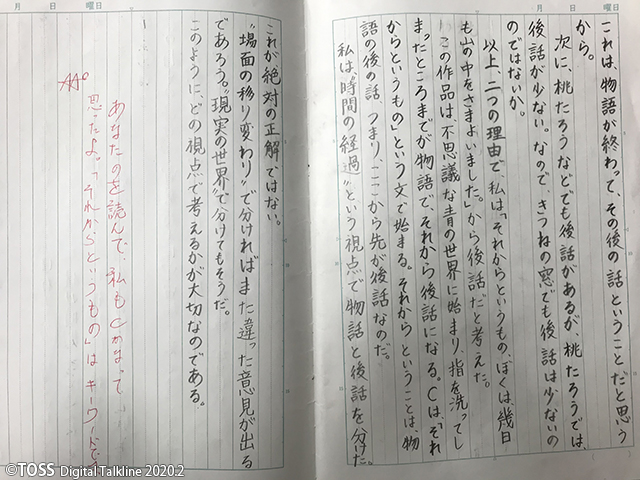 月 日 曜日
これは、物語が終わって、その後の話ということだと思う
から。
次に、桃たろうなどでも後話があるが、桃たろうでは、
後話が少ない。なので、きつねの窓でも後話は少ないの
のではないか。
以上、二つの理由で、私は「それからというもの、ぼくは幾日
も山の中をさまよいました。」から後話だと考えた。
この作品は、不思議な青の世界に始まり、指を洗ってし
まったところまでが物語で、それから後話になる。Cは、「それ
からというもの」という文で始まる。それからということは、物
語の後の話、つまり、ここから先が後話なのだ。
私は“時間の経過”という視点で物語と後話を分けた。
月 日 曜日
これが絶対の正解ではない。
“場面の移り変わり”で分ければまた違った意見が出る
であろう。“現実の世界”で分けてもそうだ。
このように、どの視点で考えるかが大切なのである。
あなたのを読んで、私もCかなって
思ったよ。「それからというもの」はキーワードです
AA°
©TOSS Digital Talkline 2020.2